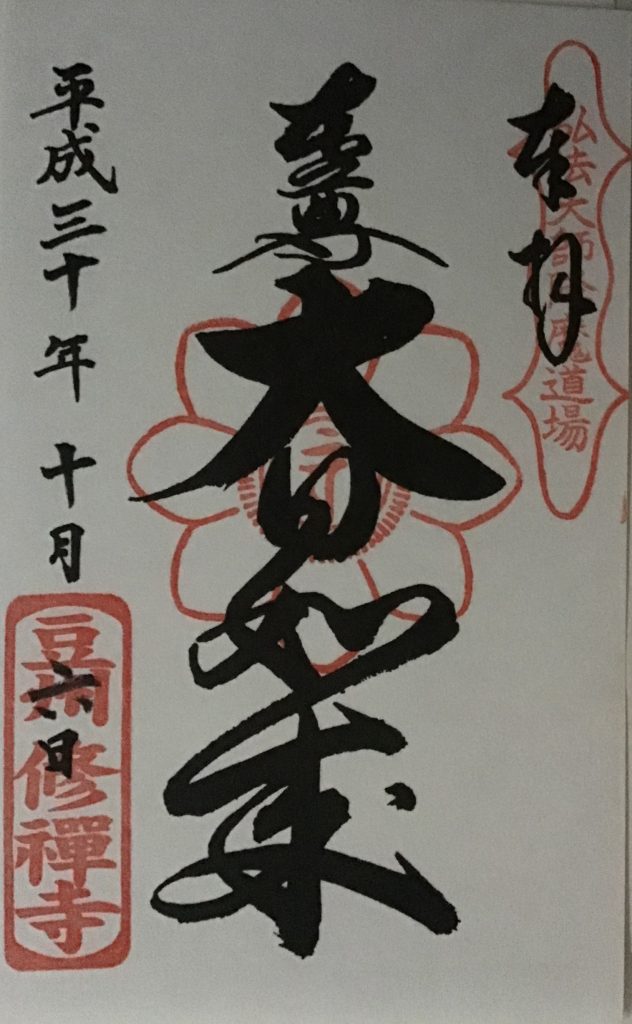 奉拝
弘法大師降魔道場
本尊
大日如来
平成三十年 十月 六日
豆州修禪寺